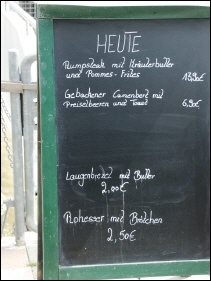 HEUTE
Rumpsteak mit Kräuterbutter
und Pommes-Frites 17,90€
Gebackener Camembert mit
Preiselbeeren und Toast 6,90€
Laugenbrezel mit Butter
2,00€
Pfohesser mit Brötchen
2,50€